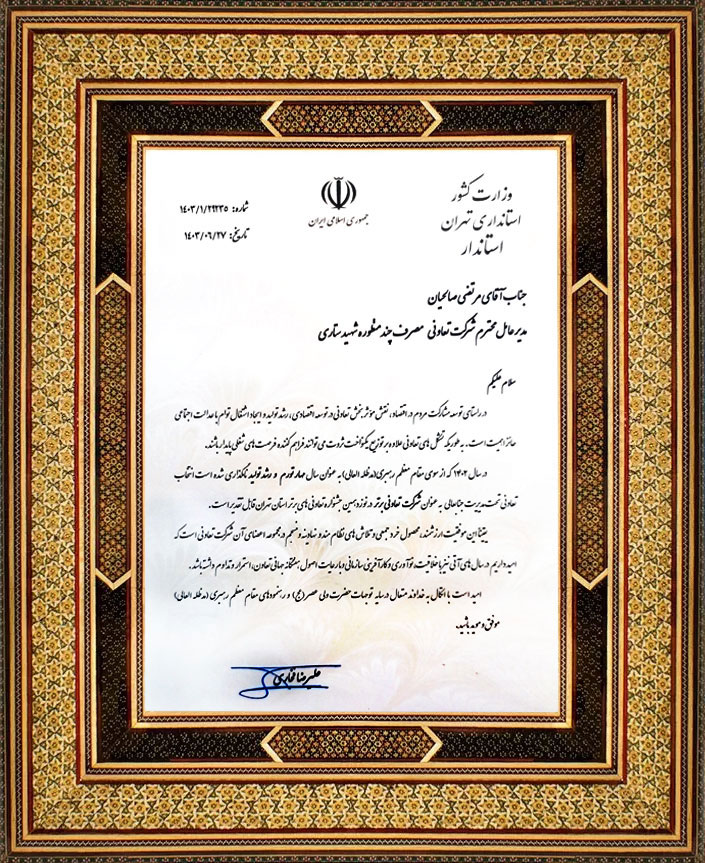 وزارت کشور
استانداری تهران
استاندار
جمهوری اسلامی ایران
شماره: ۱۴۰۳/۱/۲۹۲۳۵
تاریخ: ۱۴۰۳/۰۶/۲۷
جناب آقای مرتضی صالحیان
مدیرعامل محترم شرکت تعاونی مصرف چند منظوره شهید ستاری
سلام علیکم
در راستای توسعه مشارکت مردم در اقتصاد، نقش مؤثر بخش تعاونی در توسعه اقتصادی، رشد تولید و ایجاد اشتغال توام با عدالت اجتماعی
حائز اهمیت است. به طوریکه تشکل های تعاونی علاوه بر توزیع یکنواخت ثروت می توانند فراهم کننده فرصت های شغلی پایدار باشند.
در سال ۱۴۰۲ که از سوی مقام معظم رهبری (مدظله العالی) به عنوان سال مهار تورم و رشد تولید نامگذاری شده است انتخاب
تعاونی تحت مدیریت جنابعالی به عنوان شرکت تعاونی برتر در نوزدهمین جشنواره تعاونی های برتر استان تهران قابل تقدیر است.
یقینا این موفقیت ارزشمند، محصول خرد جمعی و تلاش های نظام مند و نهادینه و منسجم در مجموعه اعضای آن شرکت تعاونی است که
امید داریم در سال های آتی نیز با خلاقیت، نوآوری و کارآفرینی سازمانی و با رعایت اصول هفتگانه جهانی تعاون، استمرار و تداوم داشته باشد.
امید است با اتکال به خداوند متعال در سایه توجهات حضرت ولی عصر (عج) و رهنمودهای مقام معظم رهبری (مدظله العالی)
موفق و موید باشید.
علیرضا فخاری